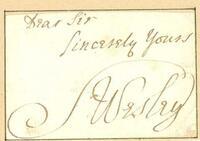 Dear Sir
Sincerely Yours
SWesley